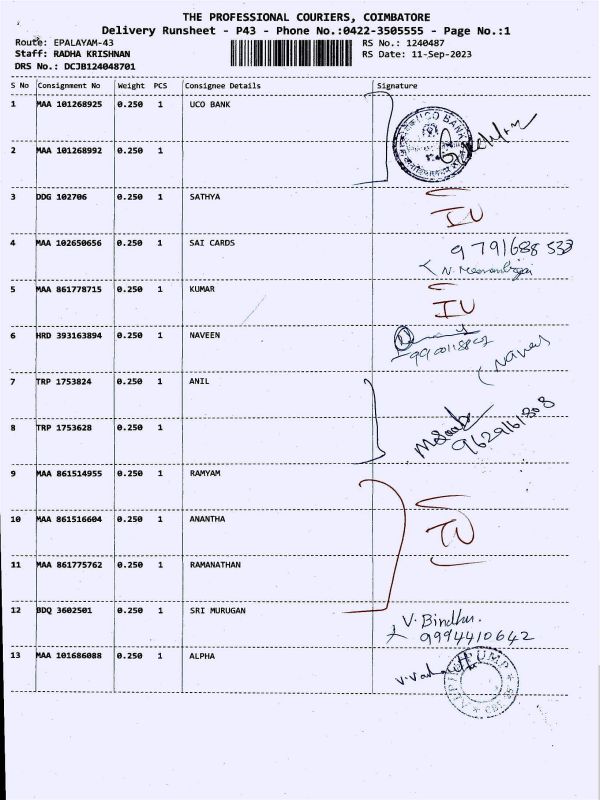 THE PROFESSIONAL COURIERS, COIMBATORE
Delivery Runsheet - P43 - Phone No.:0422-3505555 - Page No.:1
Route: EPALAYAM-43 RS No.: 1240487
Staff: RADHA KRISHNAN RS Date: 11-Sep-2023
DRS No.: DCJB124048701
S No Consignment No Weight PCS Consignee Details Signature
1 MAA 101268925 0.250 1 UCO BANK
UCO BANK
2 MAA 101268992 0.250 1
3 DDG 102706 0.250 1 SATHYA
IU
4 MAA 102650656 0.250 1 SAI CARDS
9791688533
5 MAA 861778715 0.250 1 KUMAR
IU
6 HRD 393163894 0.250 1 NAVEEN
Naveen
7 TRP 1753824 0.250 1 ANIL
8 TRP 1753628 0.250 1
9629161808
9 MAA 861514955 0.250 1 RAMYAM
10 MAA 861516604 0.250 1 ANANTHA
IU
11 MAA 861775762 0.250 1 RAMANATHAN
12 BDQ 3602501 0.250 1 SRI MURUGAN
V. Bindhu.
9994410642
13 MAA 101686088 0.250 1 ALPHA
PUMP